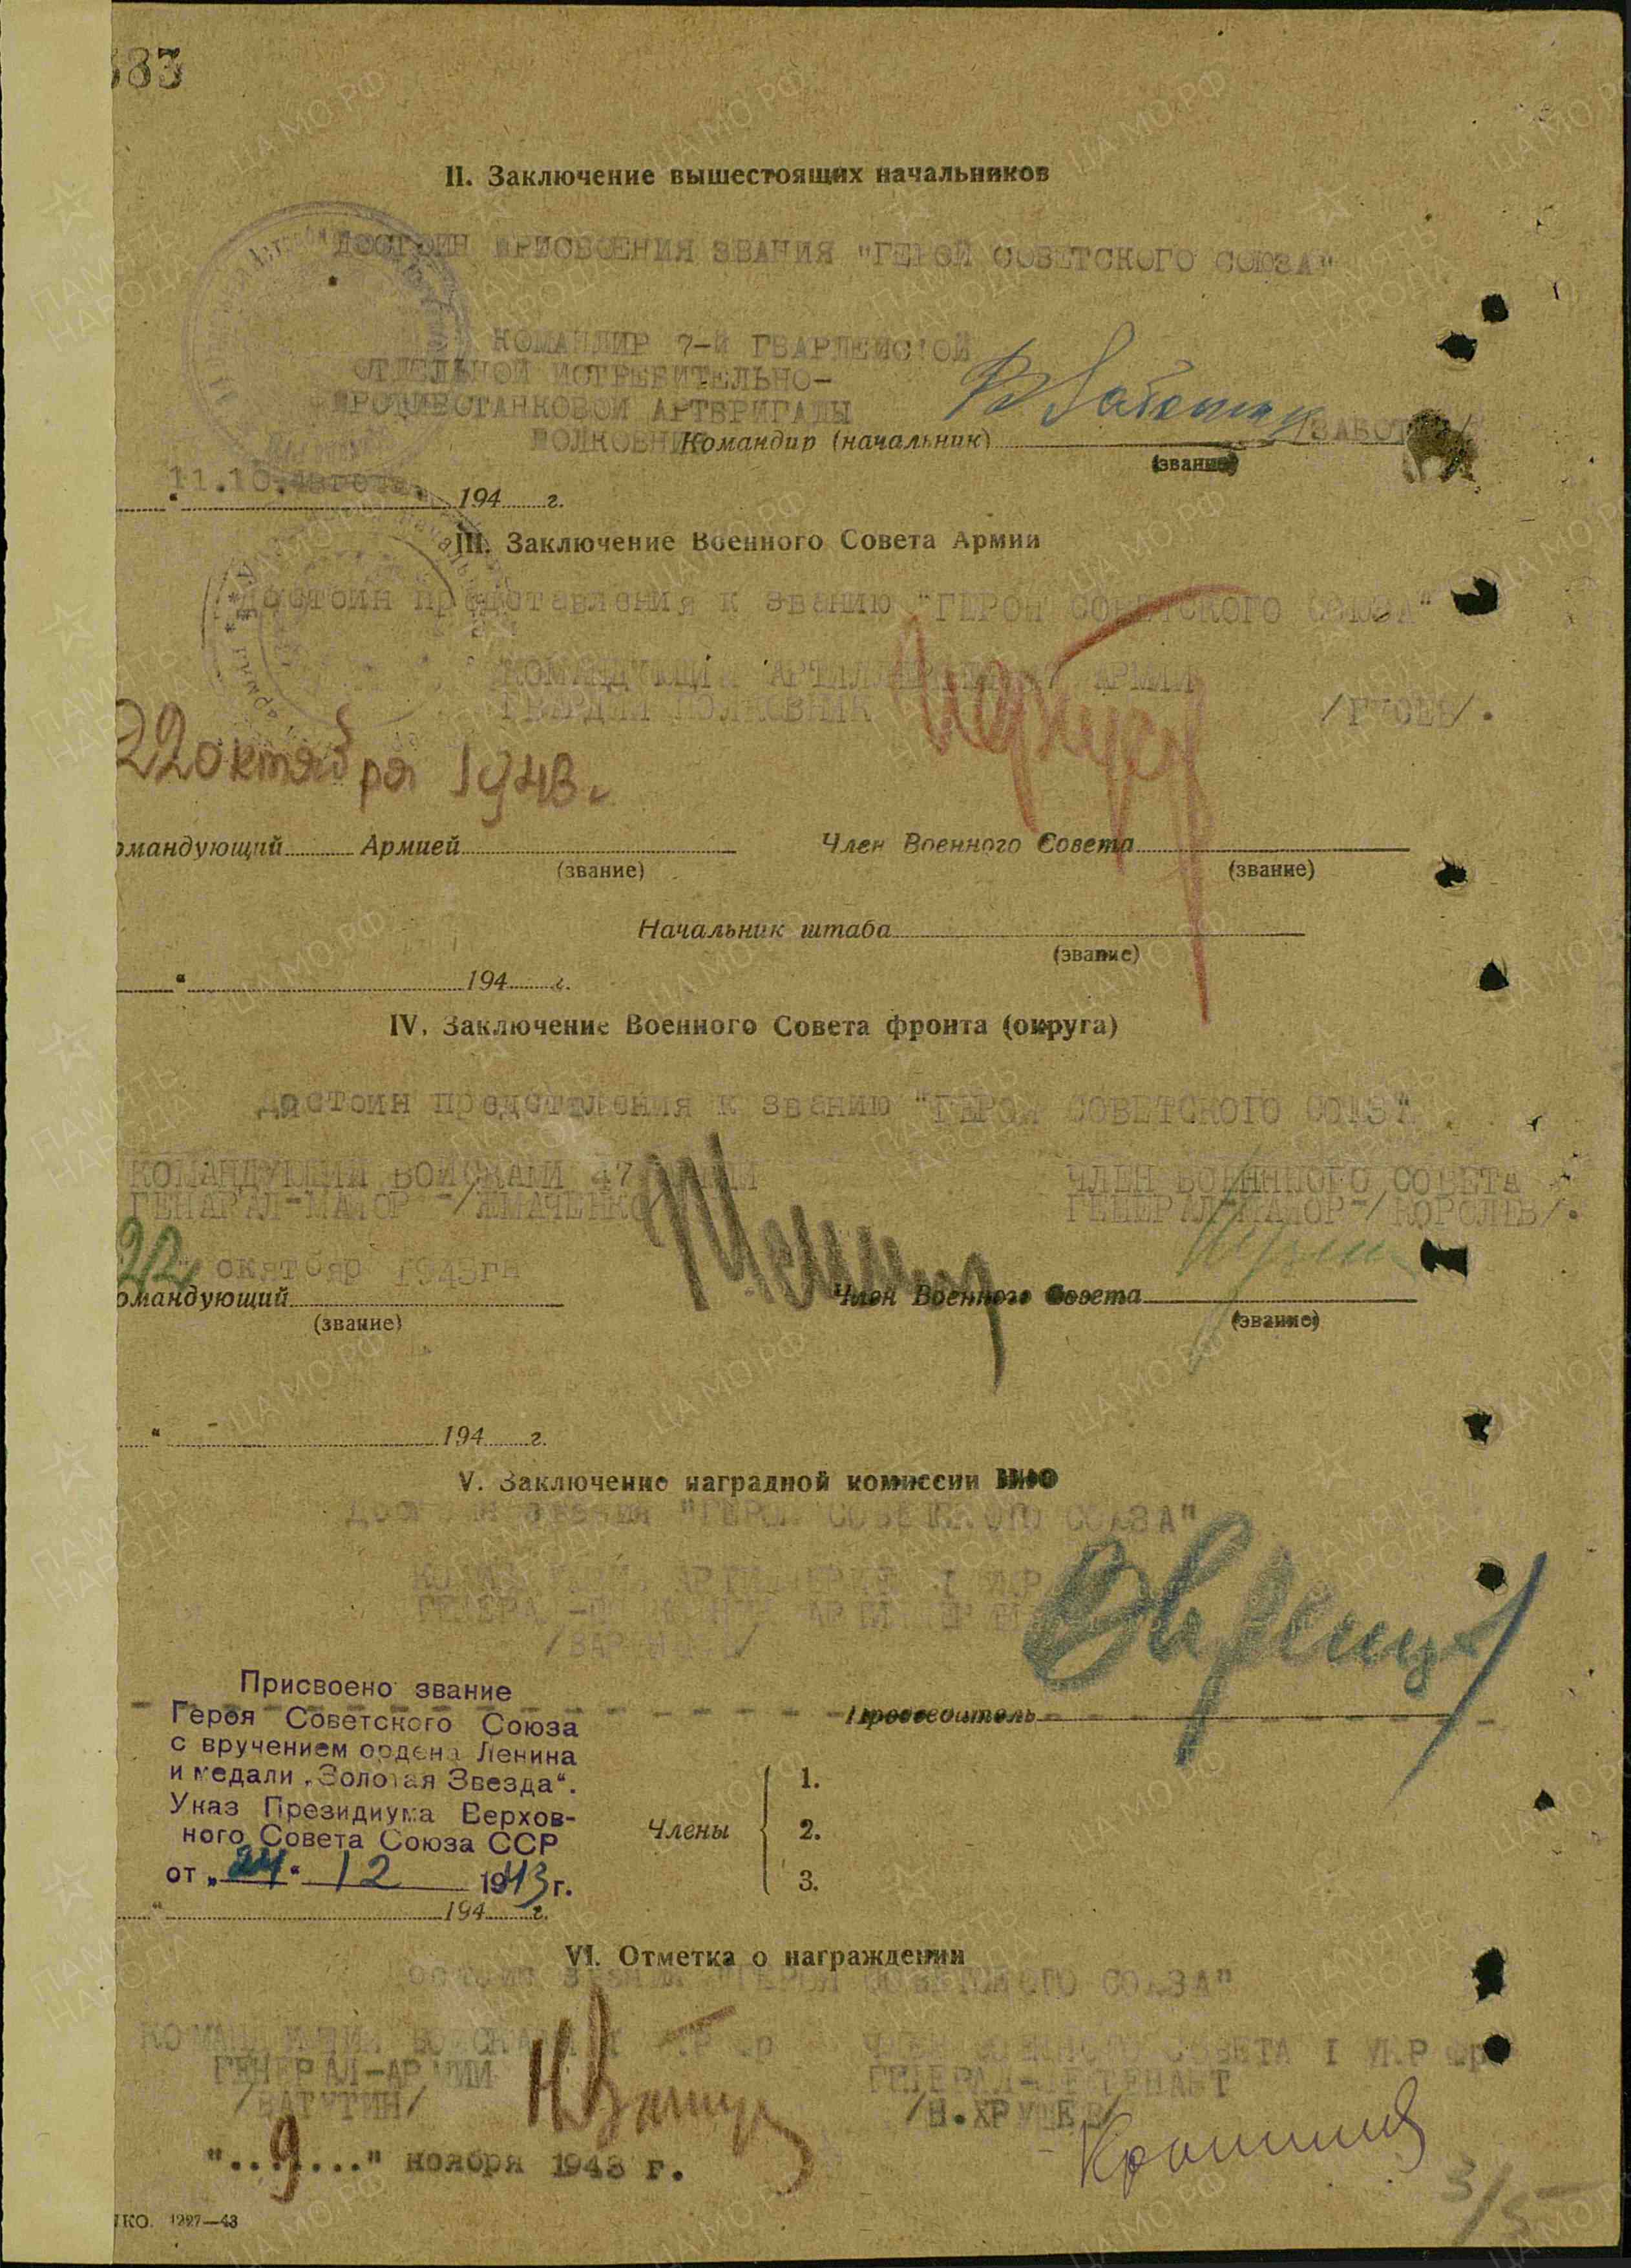 383
II. Заключение вышестоящих начальников
ДОСТОИН ПРИСВОЕНИЯ ЗВАНИЯ "ГЕРОЙ СОВЕТСКОГО СОЮЗА"
КОМАНДИР 7-Й ГВАРДЕЙСКОЙ
ОТДЕЛЬНОЙ ИСТРЕБИТЕЛЬНО-
ПРОТИВОТАНКОВОЙ АРТБРИГАДЫ
ПОЛКОВНИК
Командир (начальник)
(звание)
11.10.
" 194 г.
III. Заключение Военного Совета Армии
Достоин представления к званию "ГЕРОЯ СОВЕТСКОГО СОЮЗА"
КОМАНДУЮЩИЙ АРТИЛЛЕРИЕЙ 47 АРМИИ
ГВАРДИИ ПОЛКОВНИК /ГУСЕВ/.
22 октября 1943 г.
омандующий Армией Член Военного Совета
(звание) (звание)
Начальник штаба
(звание)
" 194 г.
IV. Заключение Военного Совета фронта (округа)
Достоин представления к званию "ГЕРОЯ СОВЕТСКОГО СОЮЗ"
КОМАНДУЮЩИЙ ВОЙСКАМИ 47 АРМИИ ЧЛЕН ВОЕННОГО СОВЕТА
ГЕНАРАЛ-МАЙОР -/ЖМАЧЕНКО ГЕНЕРАЛ-МАЙОР-/КОРОЛЕВ/.
22 октябр 1943г
омандующий Член Военного Совета
(звание) (звание)
" 194 г.
V. Заключение наградной комиссии НКО
Достоин звания "ГЕРОЯ СОВЕТСКОГО СОЮЗА"
КОМАНДУЮЩИЙ АРТИЛЛЕРИЕЙ I УКР
ГЕНЕРАЛ-ПОЛКОВНИК АРТИЛЛЕРИИ
Присвоено звание
Героя Советского Союза
с вручением ордена Ленина
и медали „Золотая Звезда“.
Указ Президиума Верхов-
ного Совета Союза ССР
от „24“ 12 1943 г.
Председатель
Члены
1.
2.
3.
" 194 г.
VI. Отметка о награждении
достоин звания "ГЕРОЯ СОВЕТСКОГО СОЮЗА"
КОМАНДУЮЩИЙ ВОЙСКАМИ I УКР фр ЧЛЕН ВОЕННОГО СОВЕТА I УКР фр
ГЕНЕРАЛ-АРМИИ ГЕНЕРАЛ-ЛЕЙТЕНАНТ
/ВАТУТИН/ /Н.ХРУЩЕВ/
"...9..." ноября 1943 г.
3/5
НКО. 1227—43
ПАМЯТЬ НАРОДА
ЦА МО.РФ